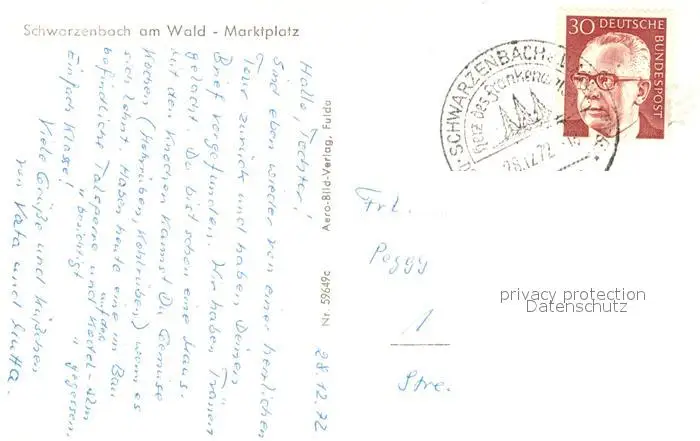 Schwarzenbach am Wald - Marktplatz
30 DEUTSCHE
BUNDESPOST
SCHWARZENBACH a.
Herz des Frankenwaldes
28.12.72
Hallo, Tochter!
Sind eben wieder von einer herrlichen
Tour zurück und haben Deinen
Brief vorgefunden. Wir haben Tränen
gelacht. Du bist schon eine Laus.
Mit den Knochen kannst Du Gemüse
kochen (Kohlrüben, Kohlrüben) wenn es
sich lohnt. Haben heute eine im Bau
befindliche Talsperre und
auf der
Einfach Klasse! " besichtigt " gegessen.
Viele Grüße und Küßchen
von Vata und Mutta.
28.12.72
Aero-Bild-Verlag, Fulda
Nr. 59649c
Frl.
Peggy
1
Str.
privacy protection
Datenschutz